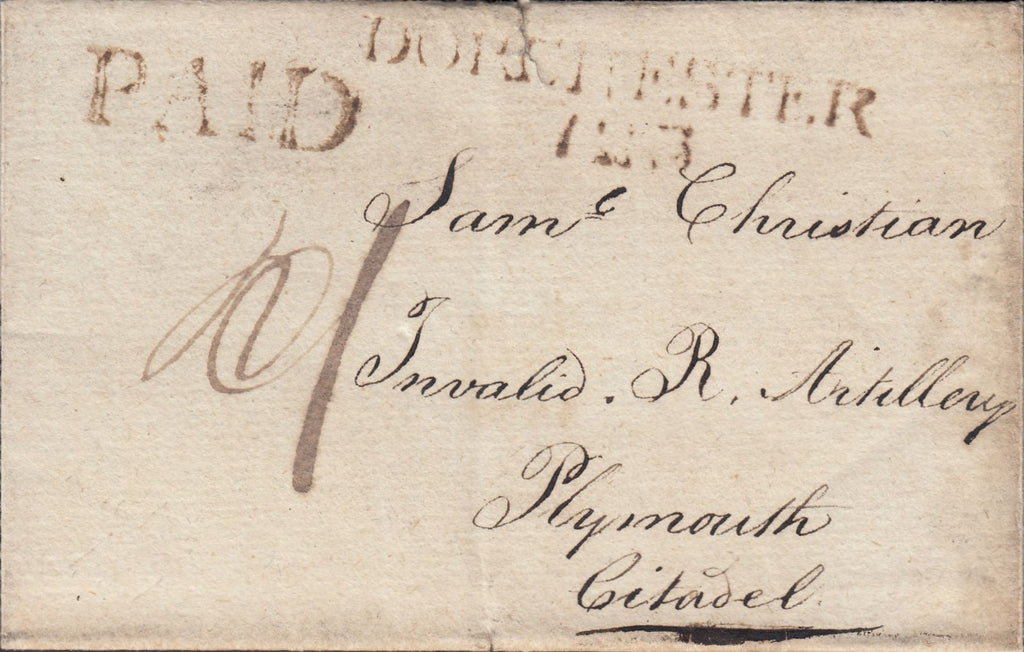 PAID
DORCHESTER
Sam<sup>l</sup> Christian
Invalid. R. Artillery
Plymouth
Citadel